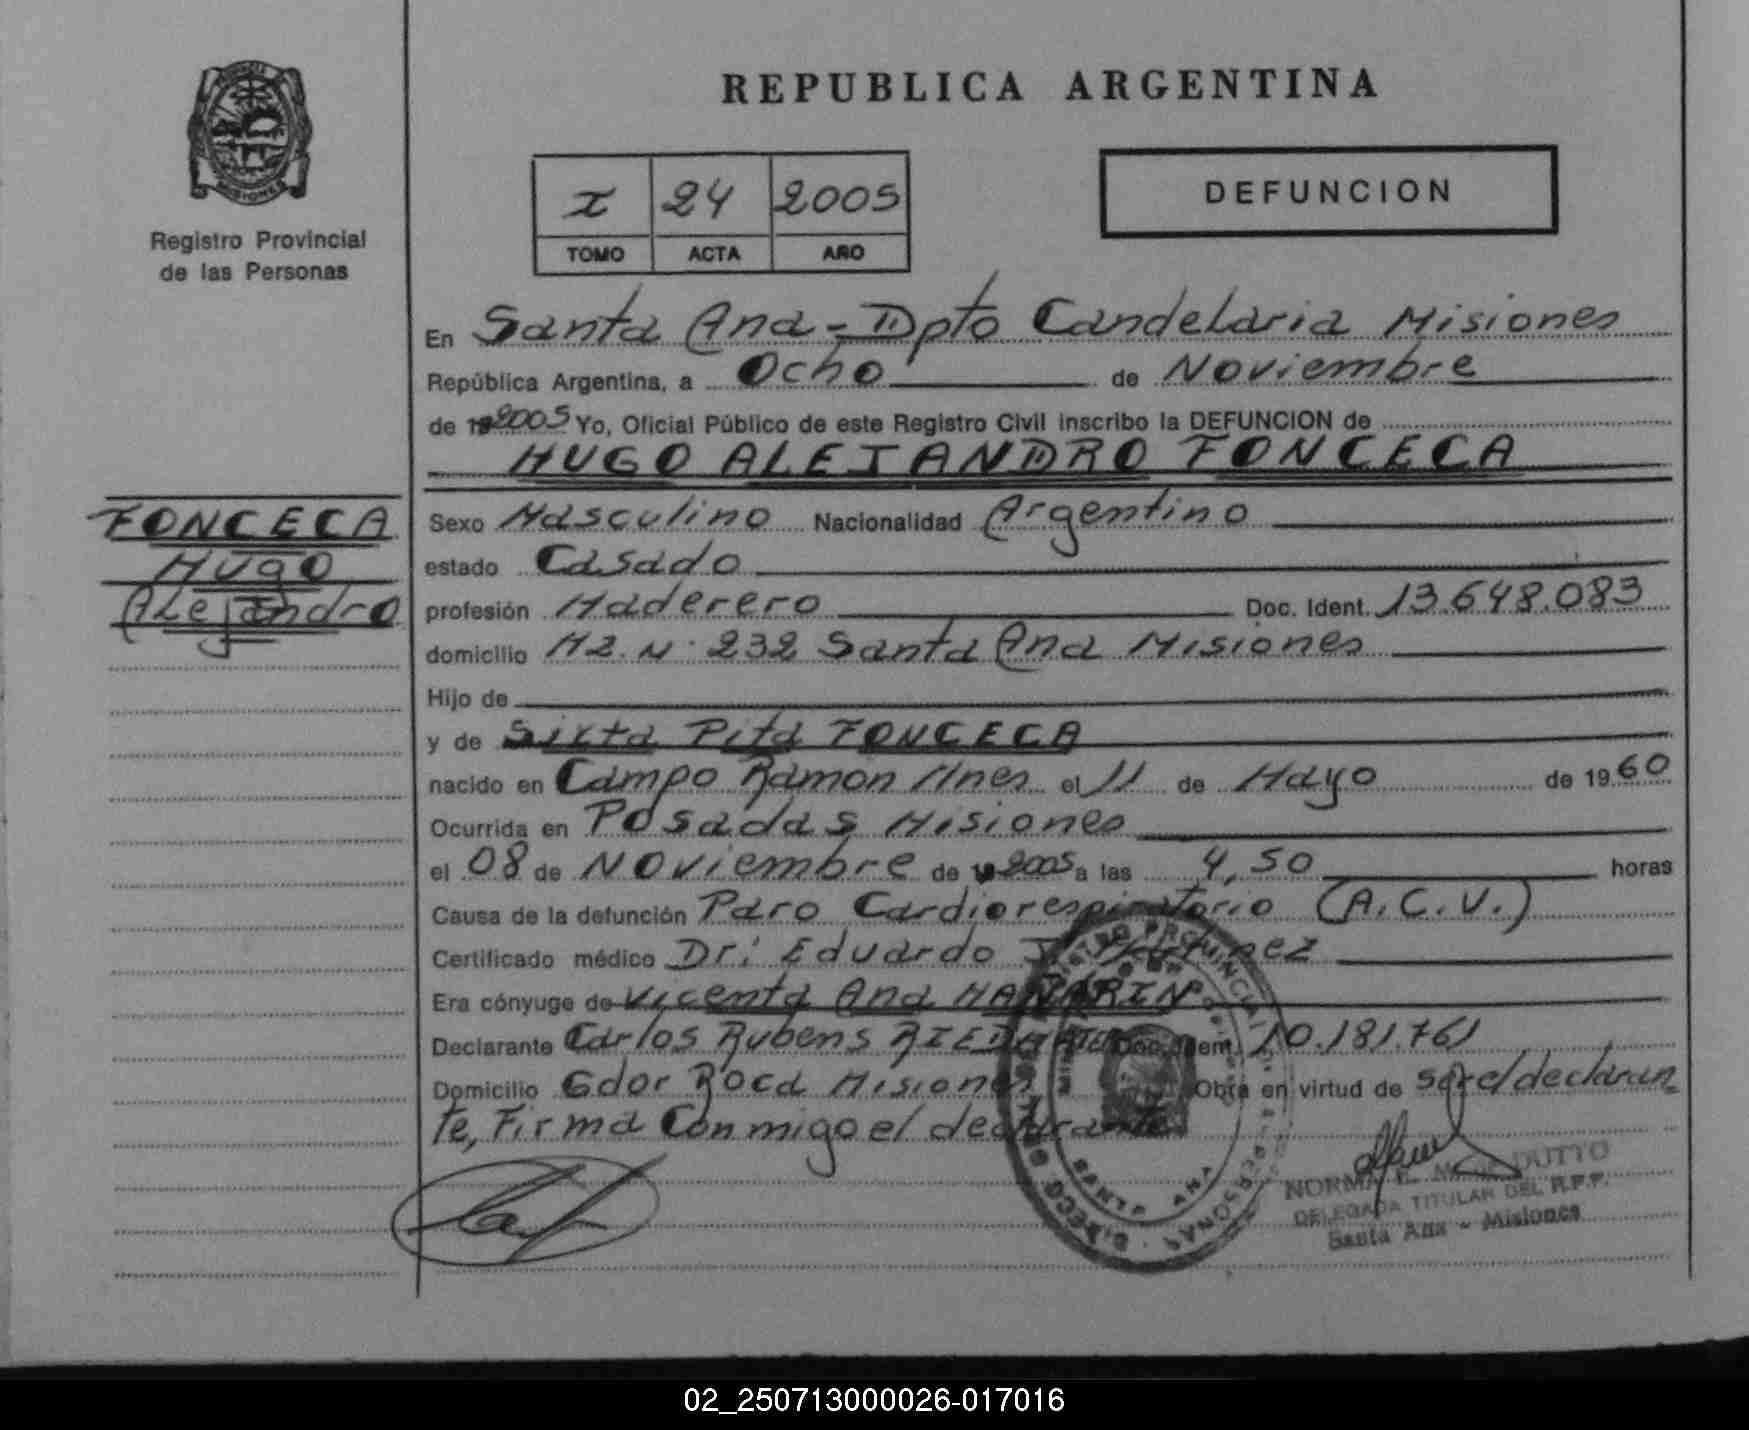 REPUBLICA ARGENTINA
MISIONES
Registro Provincial
de las Personas
I 24 2005
TOMO ACTA AÑO
DEFUNCION
En Santa Ana - Dpto Candelaria Misiones
República Argentina, a Ocho de Noviembre
de 19 2005 Yo, Oficial Público de este Registro Civil inscribo la DEFUNCION de
HUGO ALEJANDRO FONCECA
FONCECA
Hugo
Alejandro
Sexo Masculino Nacionalidad Argentino
estado Casado
profesión Maderero Doc. Ident. 13.648.083
domicilio Mz. N· 232 Santa Ana Misiones
Hijo de
y de Sixta Pita FONCECA
nacido en Campo Ramon Mnes el 11 de Mayo de 1960
Ocurrida en Posadas Misiones
el 08 de Noviembre de 19 2005 a las 4,50 horas
Causa de la defunción Paro Cardiorespiratorio (A.C.V.)
Certificado médico Dr: Eduardo J. Martinez
Era cónyuge de Vicenta Ana
Declarante Carlos Rubens Doc. Ident. 10.181.761
Domicilio Gdor Roca Misiones Obra en virtud de ser el declaran
te, Firma Conmigo el declarante
SANTA ANA
NORMA DUTTO
DELEGADA TITULAR DEL R.P.P.
Santa Ana - Misiones
02_250713000026-017016